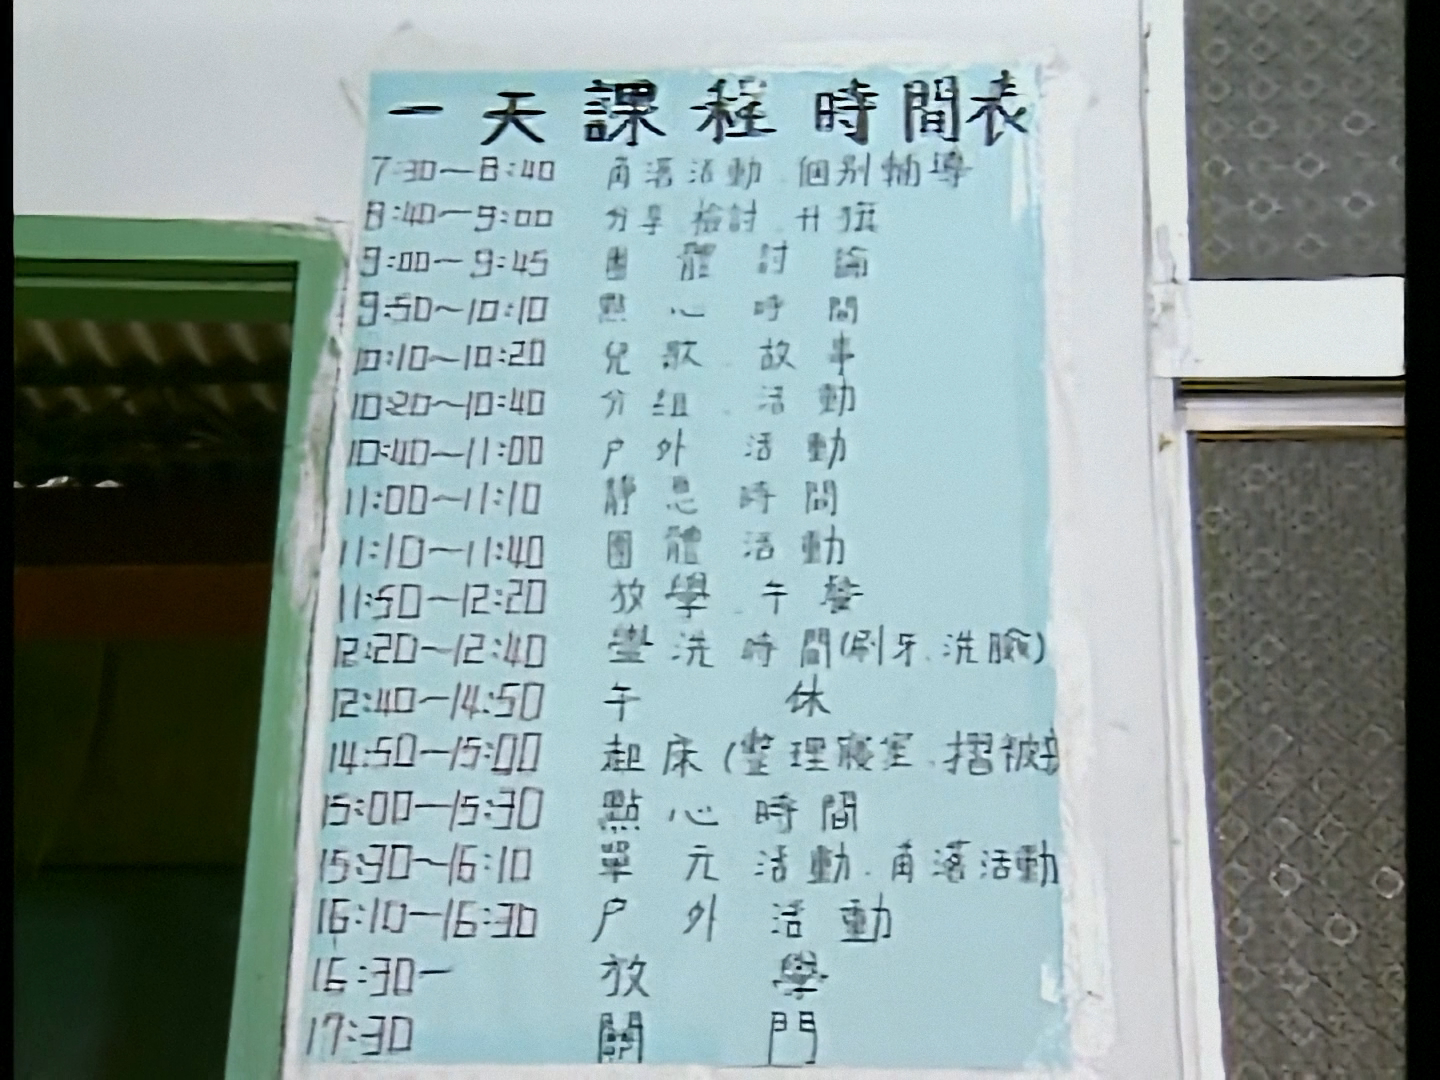 一天課程時間表
7:30~8:40 角落活動.個別輔導
8:40~9:00 分享.檢討.升旗
9:00~9:45 團體討論
9:50~10:10 點心時間
10:10~10:20 兒歌.故事
10:20~10:40 分組.活動
10:40~11:00 戶外活動
11:00~11:10 靜息時間
11:10~11:40 團體活動
11:50~12:20 放學.午餐
12:20~12:40 盥洗時間(刷牙.洗臉)
12:40~14:50 午休
14:50~15:00 起床(整理寢室.摺被
15:00~15:30 點心時間
15:30~16:10 單元活動.角落活動
16:10~16:30 戶外活動
16:30~ 放學
17:30 關門